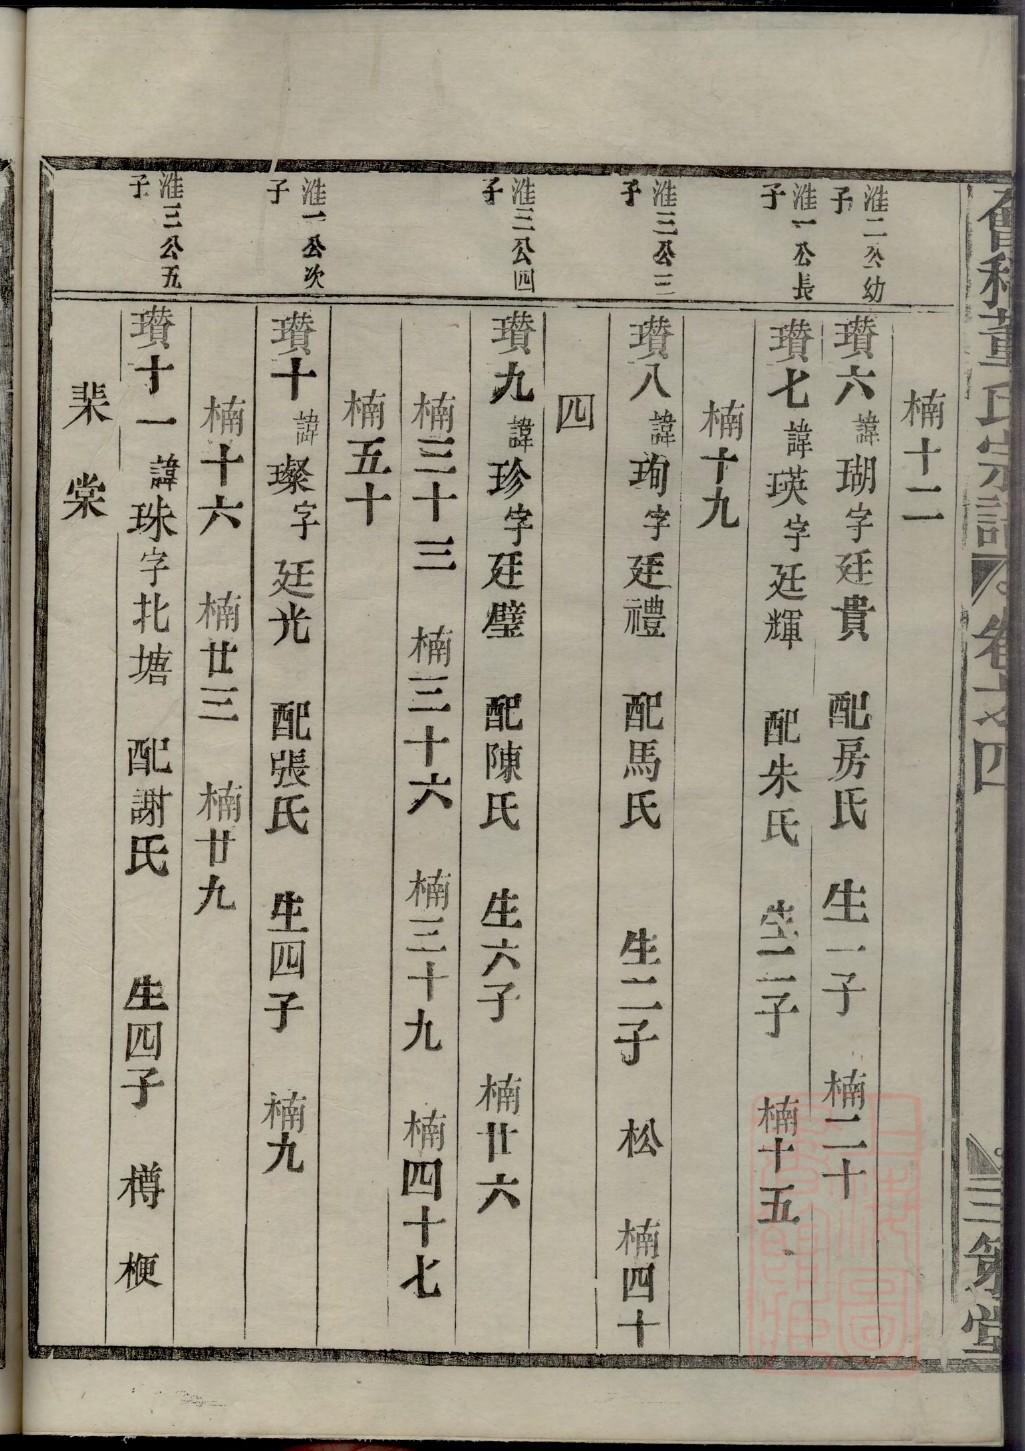 會稽董氏宗譜 卷之四 三策堂
楠十二
淮二公幼子
瓚六 諱瑚 字廷貴 配房氏 生一子 楠二十
淮一公長子
瓚七 諱瑛 字廷輝 配朱氏 生二子 楠十五
楠十九
淮三公三子
瓚八 諱珣 字廷禮 配馬氏 生二子 松 楠四十
四
淮三公四子
瓚九 諱珍 字廷璧 配陳氏 生六子 楠廿六
楠三十三 楠三十六 楠三十九 楠四十七
楠五十
淮一公次子
瓚十 諱璨 字廷光 配張氏 生四子 楠九
楠十六 楠廿三 楠廿九
淮三公五子
瓚十一 諱珠 字北塘 配謝氏 生四子 樽 梗
棐 棠